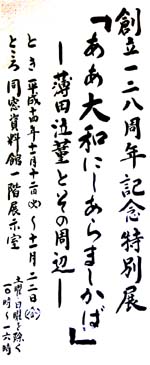 創立一二八周年記念特別展
「ああ大和にしあらましかば」
―薄田泣菫とその周辺―
とき 平成十四年十一月十二日(火)～十一月二二日(金)
ところ 同窓資料館一階展示室
土曜・日曜を除く
一〇時～一六時